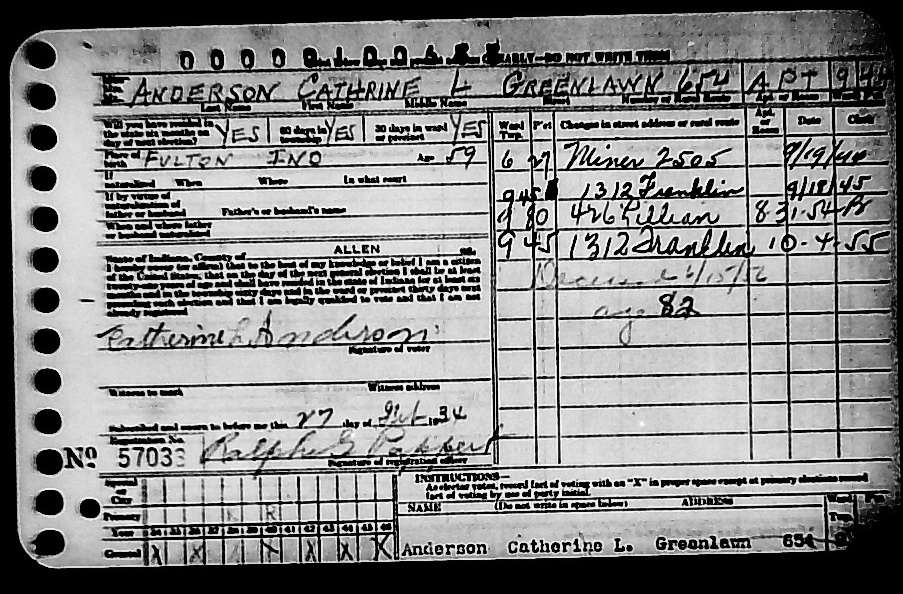 CLEARLY—DO NOT WRITE THESE
ANDERSON CATHRINE L GREENLAWN 654 APT 9
Last Name First Name Middle Name Street Number or Rural Route Apt. or Room
Will you have resided in the state six months on day of next election? YES 60 days in township? YES 30 days in ward or precinct YES
Ward Twp. P'ct Changes in street address or rural route Apt. or Room Date Clerk
Place of birth FULTON IND Age 59
6 27 Miner 2505 9/19/40
If naturalized When Where In what court
9 45 1312 Franklin 9/18/45
If by virtue of naturalization of father or husband Father's or husband's name
9 80 426 Lillian 8 31-54
When and where father or husband naturalized
9 45 1312 Franklin 10-4-55
State of Indiana, County of ALLEN SS:
I hereby swear (or affirm) that to the best of my knowledge or belief I am a citizen
of the United States, that on the day of the next general election I shall be at least
twenty-one years of age and shall have resided in the state of Indiana for at least six
months and in the township sixty days and in the ward or precinct thirty days next
preceding such election and that I am legally qualified to vote and that I am not
already registered
Deceased 6/15/56
age 82
Catherine L Anderson
Signature of voter
Witness to mark Witness address
Subscribed and sworn to before me this 27 day of 1934
Registration No.
No 57033 Ralph G Pappert
Signature of registration officer
INSTRUCTIONS—
As elector votes, record fact of voting with an "X" in proper space except at primary elections record
fact of voting by use of party initial.
Special
City
Primary R
Year 34 35 36 37 38 39 40 41 42 43 44 45 46
General X X X X X X
NAME (Do not write in space below) ADDRESS Ward Twp.
Anderson Catherine L. Greenlawn 654